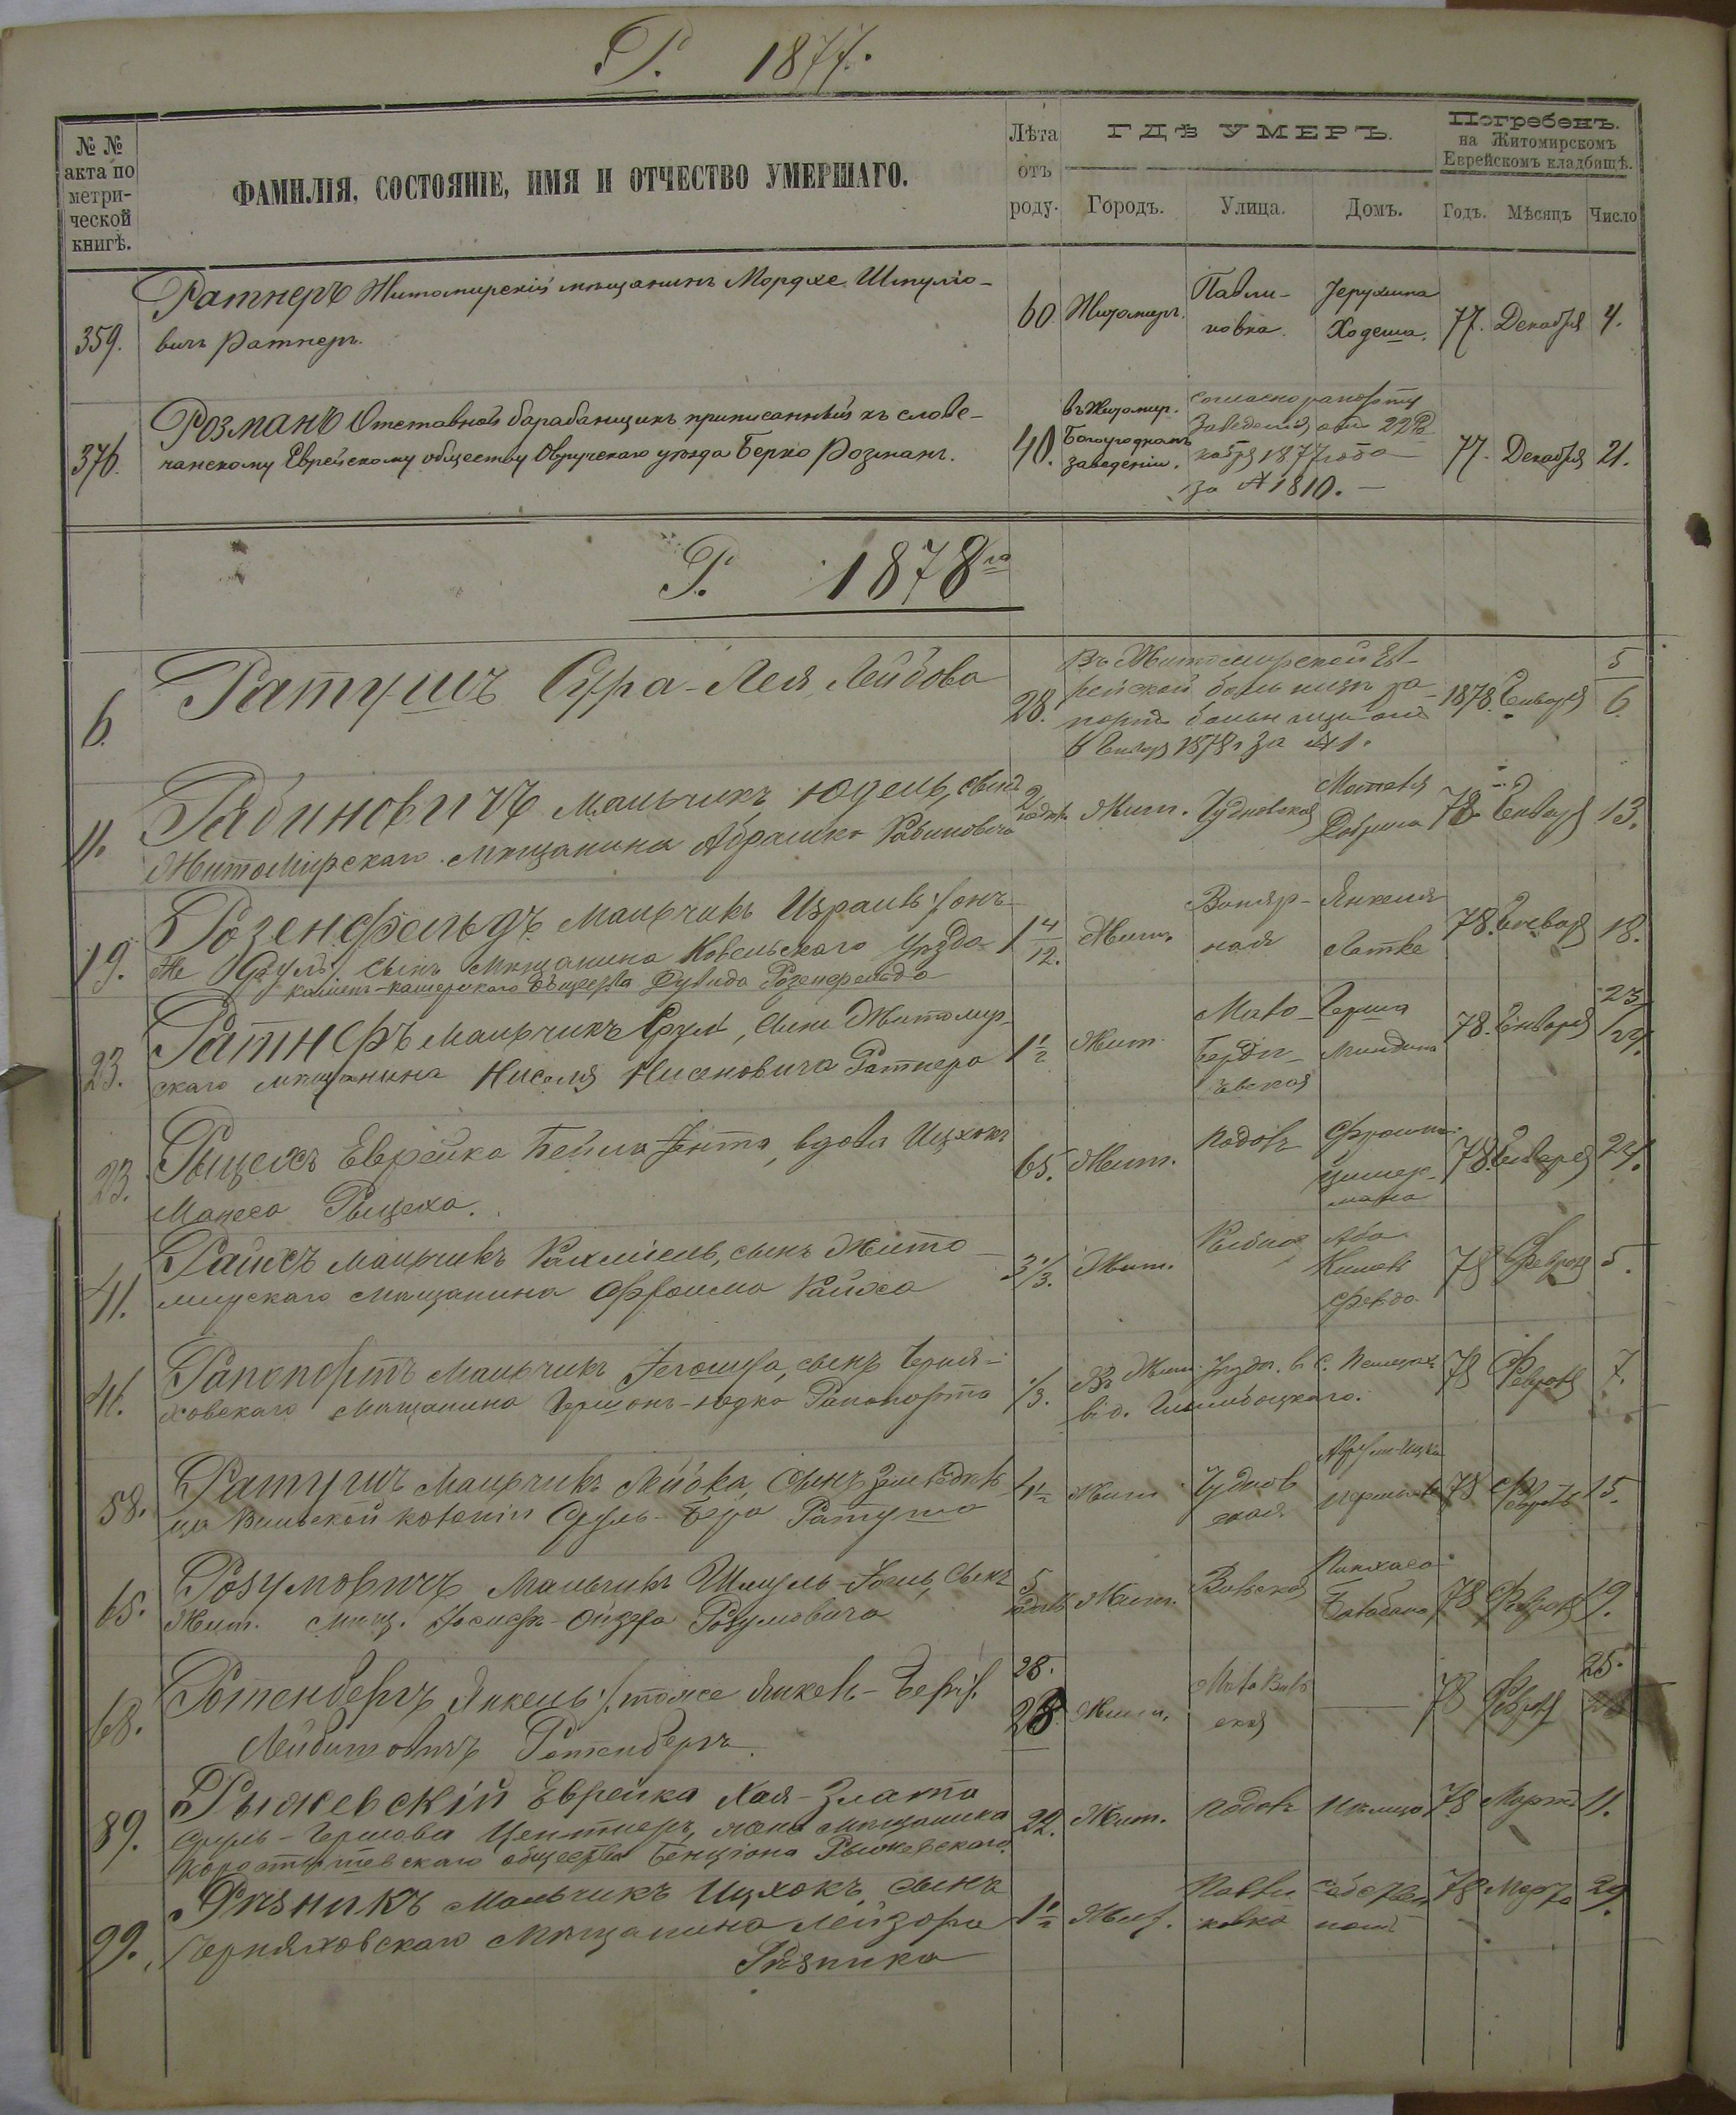 Р. 1877.
№ №
акта по
метри-
ческой
книгѣ.
ФАМИЛІЯ, СОСТОЯНІЕ, ИМЯ И ОТЧЕСТВО УМЕРШАГО.
Лѣта
отъ
роду.
ГДѢ УМЕРЪ.
Городъ. Улица. Домъ.
Погребенъ.
на Житомирскомъ
Еврейскомъ кладбищѣ.
Годъ. Мѣсяцъ Число
359. Ратнеръ Житомирскій мѣщанинъ Мордхе Шмуліо-
вичъ Ратнеръ.
60 Житомиръ. Павли-
ковка. Ходеша. 77. Декабря 4.
376. Розманъ Отставной барабанщикъ приписанный къ слове-
чанскому Еврейскому обществу Овручскаго уѣзда Берко Розманъ.
40. въ Житомир.
Богоугодномъ
заведеніи.
согласно рапорту
Заведенія отъ 22 Де-
кабря 1877 года
за № 1810.
77. Декабря 21.
Р. 1878 го
6. Ратушъ Сура-Лея Лейбова
28. Въ Житомирской Ев-
рейской больницѣ ра-
портъ больницы отъ
6 Января 1878 г. за № 1.
1878. Января 5
6.
11. Рабиновичъ Мальчикъ Юдель, сынъ
Житомірскаго мѣщанина Абрамка Рабиновича
2 Жит. Чудновская 78 Января 13.
19. Розенфельдъ Мальчикъ Израиль /онъ
же Сруль/ сынъ мѣщанина Ковельскаго уѣзда
камень-каширскаго общества Дувида Розенфельда
1 4/12. Жит. Янкеля 78. Января 18.
23. Ратнеръ мальчикъ Сруль, сынъ Житомир-
скаго мѣщанина Ниселя Нисеновича Ратнера
1 1/2 Жит. Мало-
Берди-
чевская
Герша
78. Января 23/24.
23. Рыцехъ Еврейка Бейла Ента, вдова Ицхокъ
Манеса Рыцеха.
65. Жит. Подолъ Фроима
Цимер-
мана
78. Января 24.
41. Райхъ мальчикъ Рахміель, сынъ Жито-
мирскаго мѣщанина Фроима Райха
3 1/3. Жит. Рыбная Аба
78 Февраля 5.
41. Рапопортъ Мальчикъ Іегошуа, сынъ Черня-
ховскаго мѣщанина Гершонъ-Юдка Рапопорта
1/3. Въ Жит. уѣздѣ. в с.
78 Февраля 7.
58. Ратушъ Мальчикъ Лейбка, сынъ Земледѣль
ца Вильской колоніи Сруль-Бера Ратуша
1 1/2 Жит. Чуднов
ская
78 Февраль 15.
65. Розумовичъ Мальчикъ Шмуль-Іоель, сынъ
Жит. мѣщ. Розумовича
5 Жит. Вильская Пинхаса
Балабана 78 Февраля 19.
68. Ротенбергъ Янкель /тоже Янкель-Беръ/.
Лейбишовичъ Ротенбергъ.
28.
28. Жит. Мало Виль
ская
78 Февраля 25.
89. Рыжевскій Еврейка Хая-Злата
Сруль-Гершова Центнеръ, жена мѣщанина
Коростышевскаго общества Бенціона Рыжевскаго.
22. Жит. Подолъ 78 Марта 11.
99. Рѣзникъ Мальчикъ Ицхокъ, сынъ
Черняховскаго мѣщанина Лейзора
Рѣзника
1 1/2 Жит. Павли
ковка собствен
номъ
78 Марта 29.